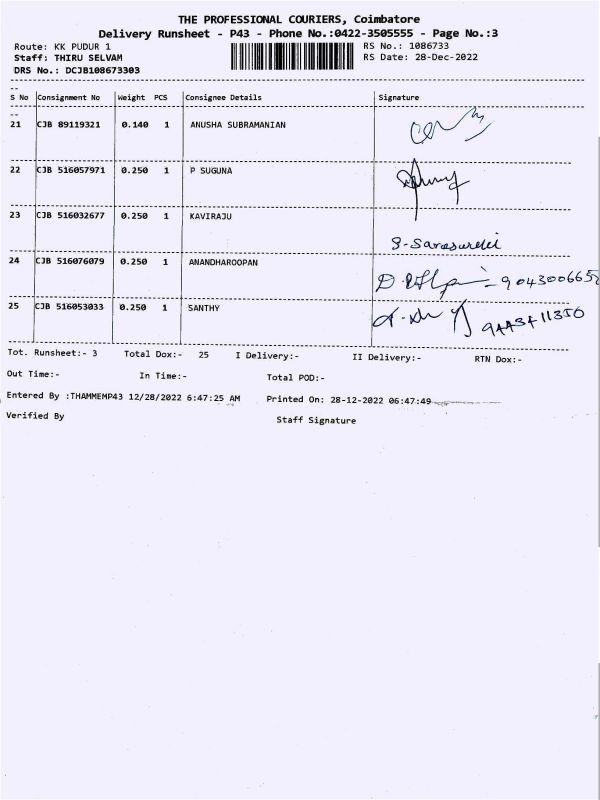 THE PROFESSIONAL COURIERS, Coimbatore
Delivery Runsheet - P43 - Phone No.:0422-3505555 - Page No.:3
Route: KK PUDUR 1 RS No.: 1086733
Staff: THIRU SELVAM RS Date: 28-Dec-2022
DRS No.: DCJB108673303
S No Consignment No Weight PCS Consignee Details Signature
21 CJB 89119321 0.140 1 ANUSHA SUBRAMANIAN
22 CJB 516057971 0.250 1 P SUGUNA
23 CJB 516032677 0.250 1 KAVIRAJU
24 CJB 516076079 0.250 1 ANANDHAROOPAN
25 CJB 516053033 0.250 1 SANTHY
Tot. Runsheet:- 3 Total Dox:- 25 I Delivery:- II Delivery:- RTN Dox:-
Out Time:- In Time:- Total POD:-
Entered By :THAMMEMP43 12/28/2022 6:47:25 AM Printed On: 28-12-2022 06:47:49
Verified By Staff Signature